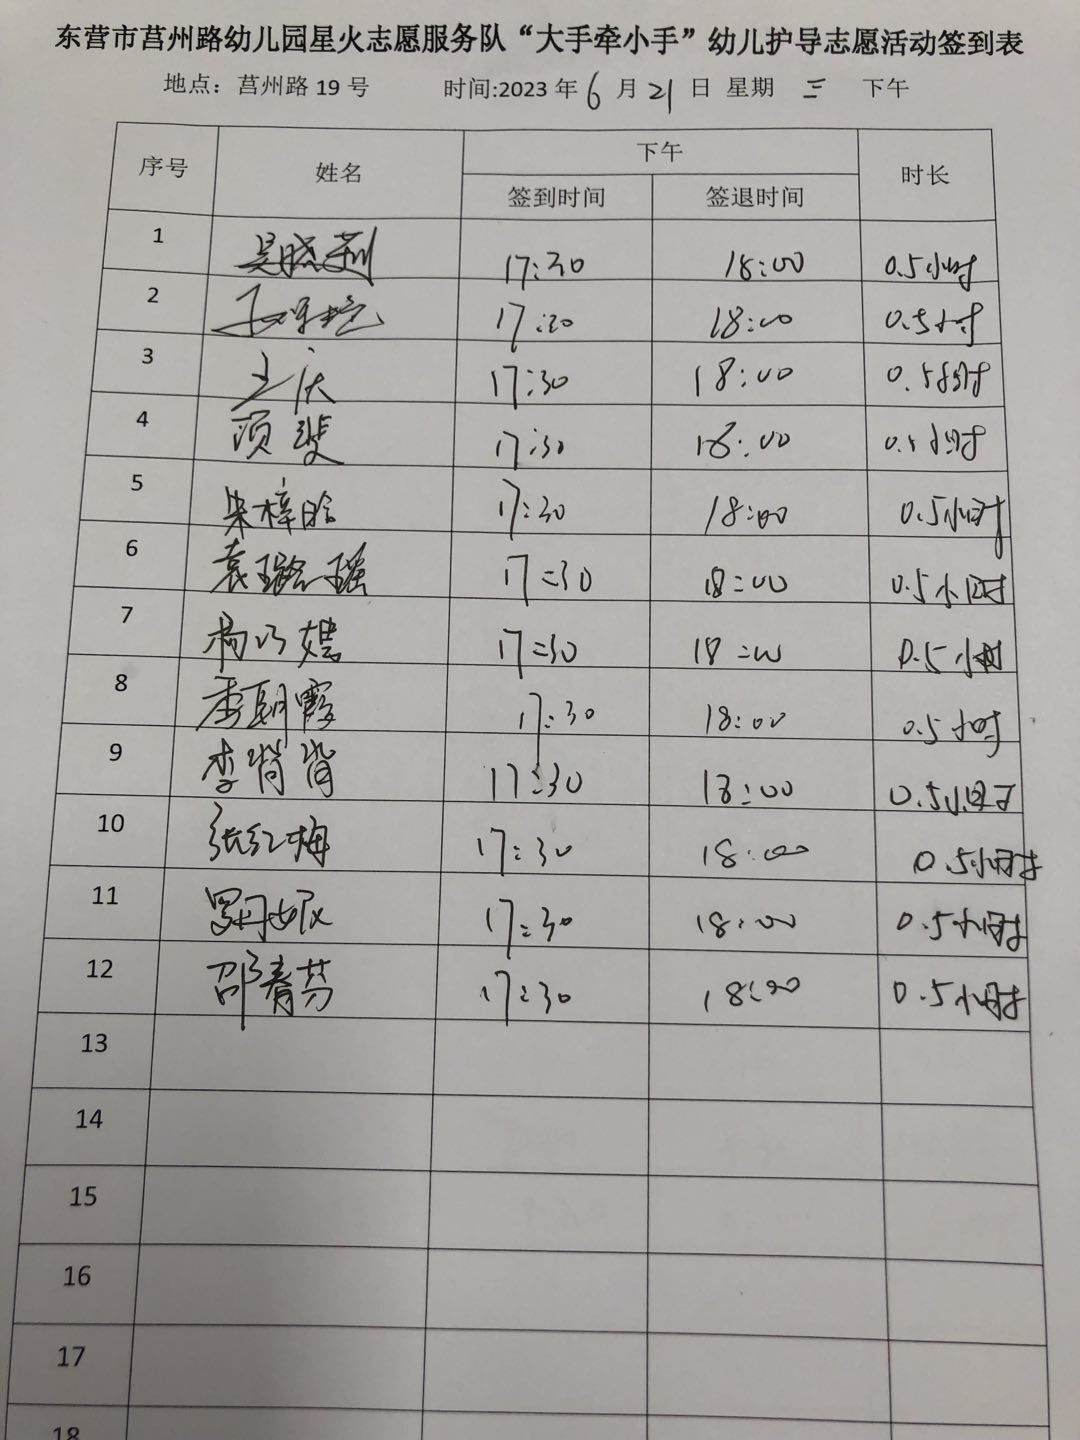 东营市莒州路幼儿园星火志愿服务队“大手牵小手”幼儿护导志愿活动签到表
地点：莒州路 19 号 时间:2023 年 6 月 21 日 星期 三 下午
序号 姓名 下午 时长
签到时间 签退时间
1 吴晓莉 17:30 18:00 0.5小时
2 17:30 18:00 0.5小时
3 王庆 17:30 18:00 0.5小时
4 顾斐 17:30 18:00 0.5小时
5 朱梓晗 17:30 18:00 0.5小时
6 袁璐瑶 17:30 18:00 0.5小时
7 17:30 18:00 0.5小时
8 季朝霞 17:30 18:00 0.5小时
9 李肖肖 17:30 18:00 0.5小时
10 张红梅 17:30 18:00 0.5小时
11 罗丹妮 17:30 18:00 0.5小时
12 邵青芬 17:30 18:00 0.5小时
13
14
15
16
17
18